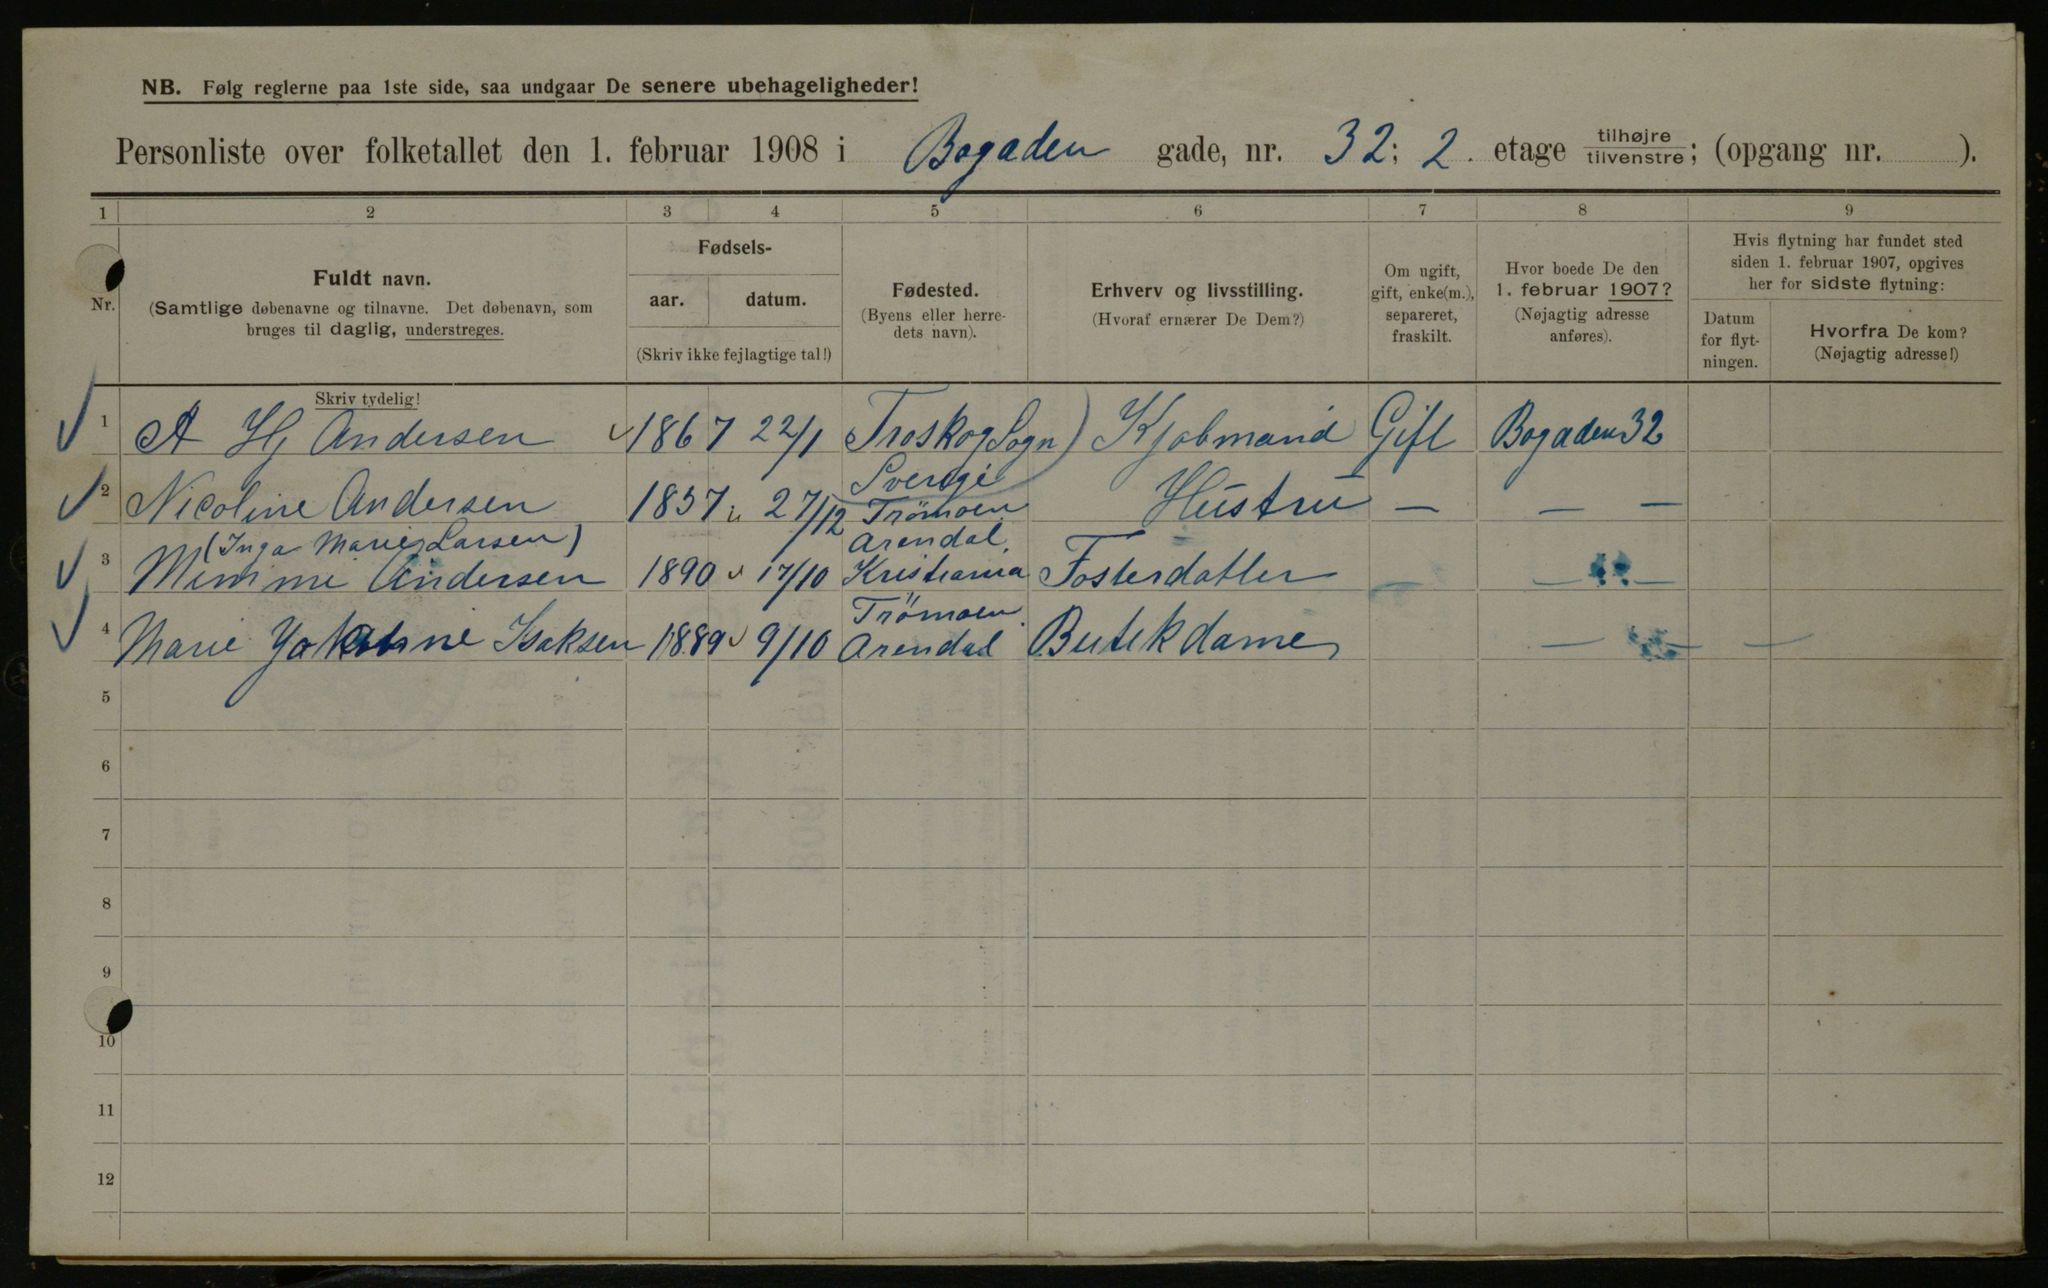 NB. Følg reglerne paa 1ste side, saa undgaar De senere ubehageligheder!
Personliste over folketallet den 1. februar 1908 i Bogaden gade, nr. 32; 2. etage tilhøjre/tilvenstre; (opgang nr. ).
1 2 3 4 5 6 7 8 9
Nr.
Fuldt navn.
(Samtlige døbenavne og tilnavne. Det døbenavn, som
bruges til daglig, understreges.
Skriv tydelig!
Fødsels-
aar. datum.
(Skriv ikke fejlagtige tal!)
Fødested.
(Byens eller herre-
dets navn).
Erhverv og livsstilling.
(Hvoraf ernærer De Dem?)
Om ugift,
gift, enke(m.),
separeret,
fraskilt.
Hvor boede De den
1. februar 1907?
(Nøjagtig adresse
anføres).
Hvis flytning har fundet sted
siden 1. februar 1907, opgives
her for sidste flytning:
Datum
for flyt-
ningen.
Hvorfra De kom?
(Nøjagtig adresse!)
1 A Hj Andersen 1867 22/1 Troskog Sogn) Kjøbmand Gift Bogaden 32
Sverige
2 Nicoline Andersen 1857 27/12 Trømøen Hustru — — —
Arendal.
(Inga Marie Larsen)
3 Mimmi Andersen 1890 17/10 Kristiania Fosterdatter — —
Trømøen
4 Marie Isaksen 1889 9/10 Arendal Butikdame — — —
5
6
7
8
9
10
11
12